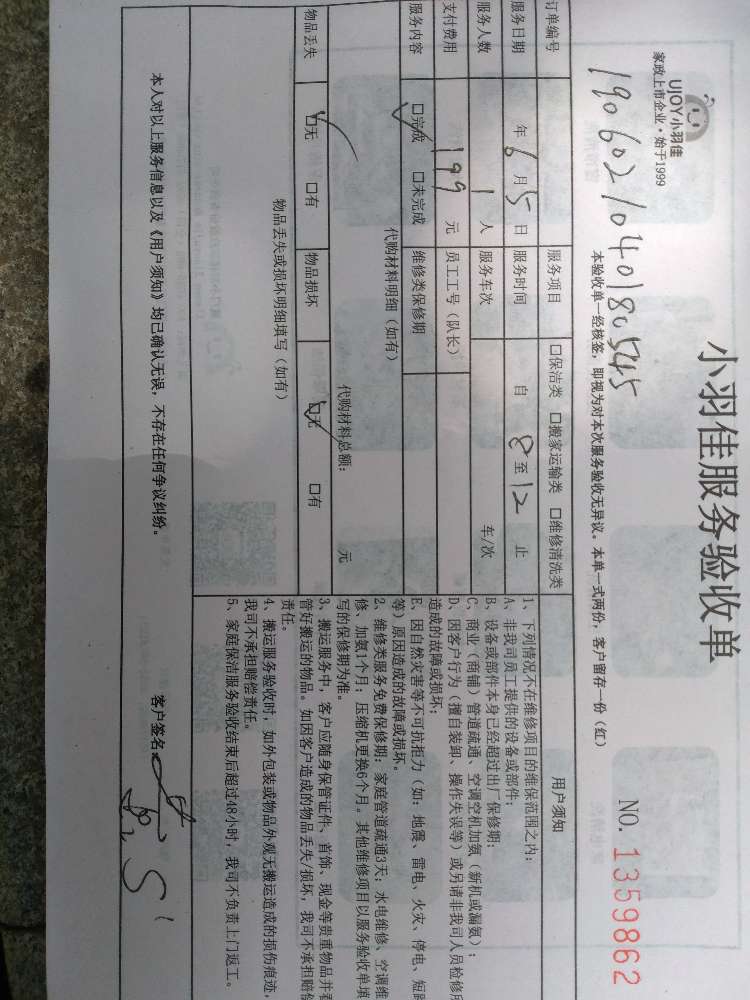 UJOY小羽佳
家政上市企业·始于1999
小羽佳服务验收单
NO. 1359862
190602104018 545
本验收单一经核签，即视为对本次服务验收无异议。本单一式两份，客户留存一份（红）
订单编号
服务项目 口保洁类 口搬家运输类 口维修清洗类
服务日期 年 6 月 5 日 服务时间 自 8 至 12 止
服务人数 1 人 服务车次 车/次
支付费用 199 元 员工工号（队长）
服务内容 口完成 口未完成 维修类保修期
代购材料明细（如有）
代购材料总额： 元
物品丢失 口无 口有 物品损坏 口无 口有
物品丢失或损坏明细填写（如有）
用户须知
1、下列情况不在维修项目的维保范围之内：
A、非我司员工提供的设备或部件；
B、设备或部件本身已经超过出厂保修期；
C、商业（商铺）管道疏通、空调空机加氨（新机或漏氨）；
D、因客户行为（擅自装卸、操作失误等）或另请非我司人员检修
造成的故障或损坏；
E、因自然灾害等不可抗拒力（如：地震、雷电、火灾、停电、短
等）原因造成的故障或损坏。
2、维修类服务免费保修期：家庭管道疏通3天；水电维修、空调维
修、加氨1个月；压缩机更换6个月。其他维修项目以服务验收单填
写的保修期为准。
3、搬运服务中，客户应随身保管证件、首饰、现金等贵重物品并
管好搬运的物品。如因客户造成的物品丢失/损坏，我司不承担赔偿
责任。
4、搬运服务验收时，如外包装或物品外观无搬运造成的损伤痕迹，
我司不承担赔偿责任。
5、家庭保洁服务验收结束后超过48小时，我司不负责上门返工。
本人对以上服务信息以及《用户须知》均已确认无误，不存在任何争议纠纷。
客户签名：